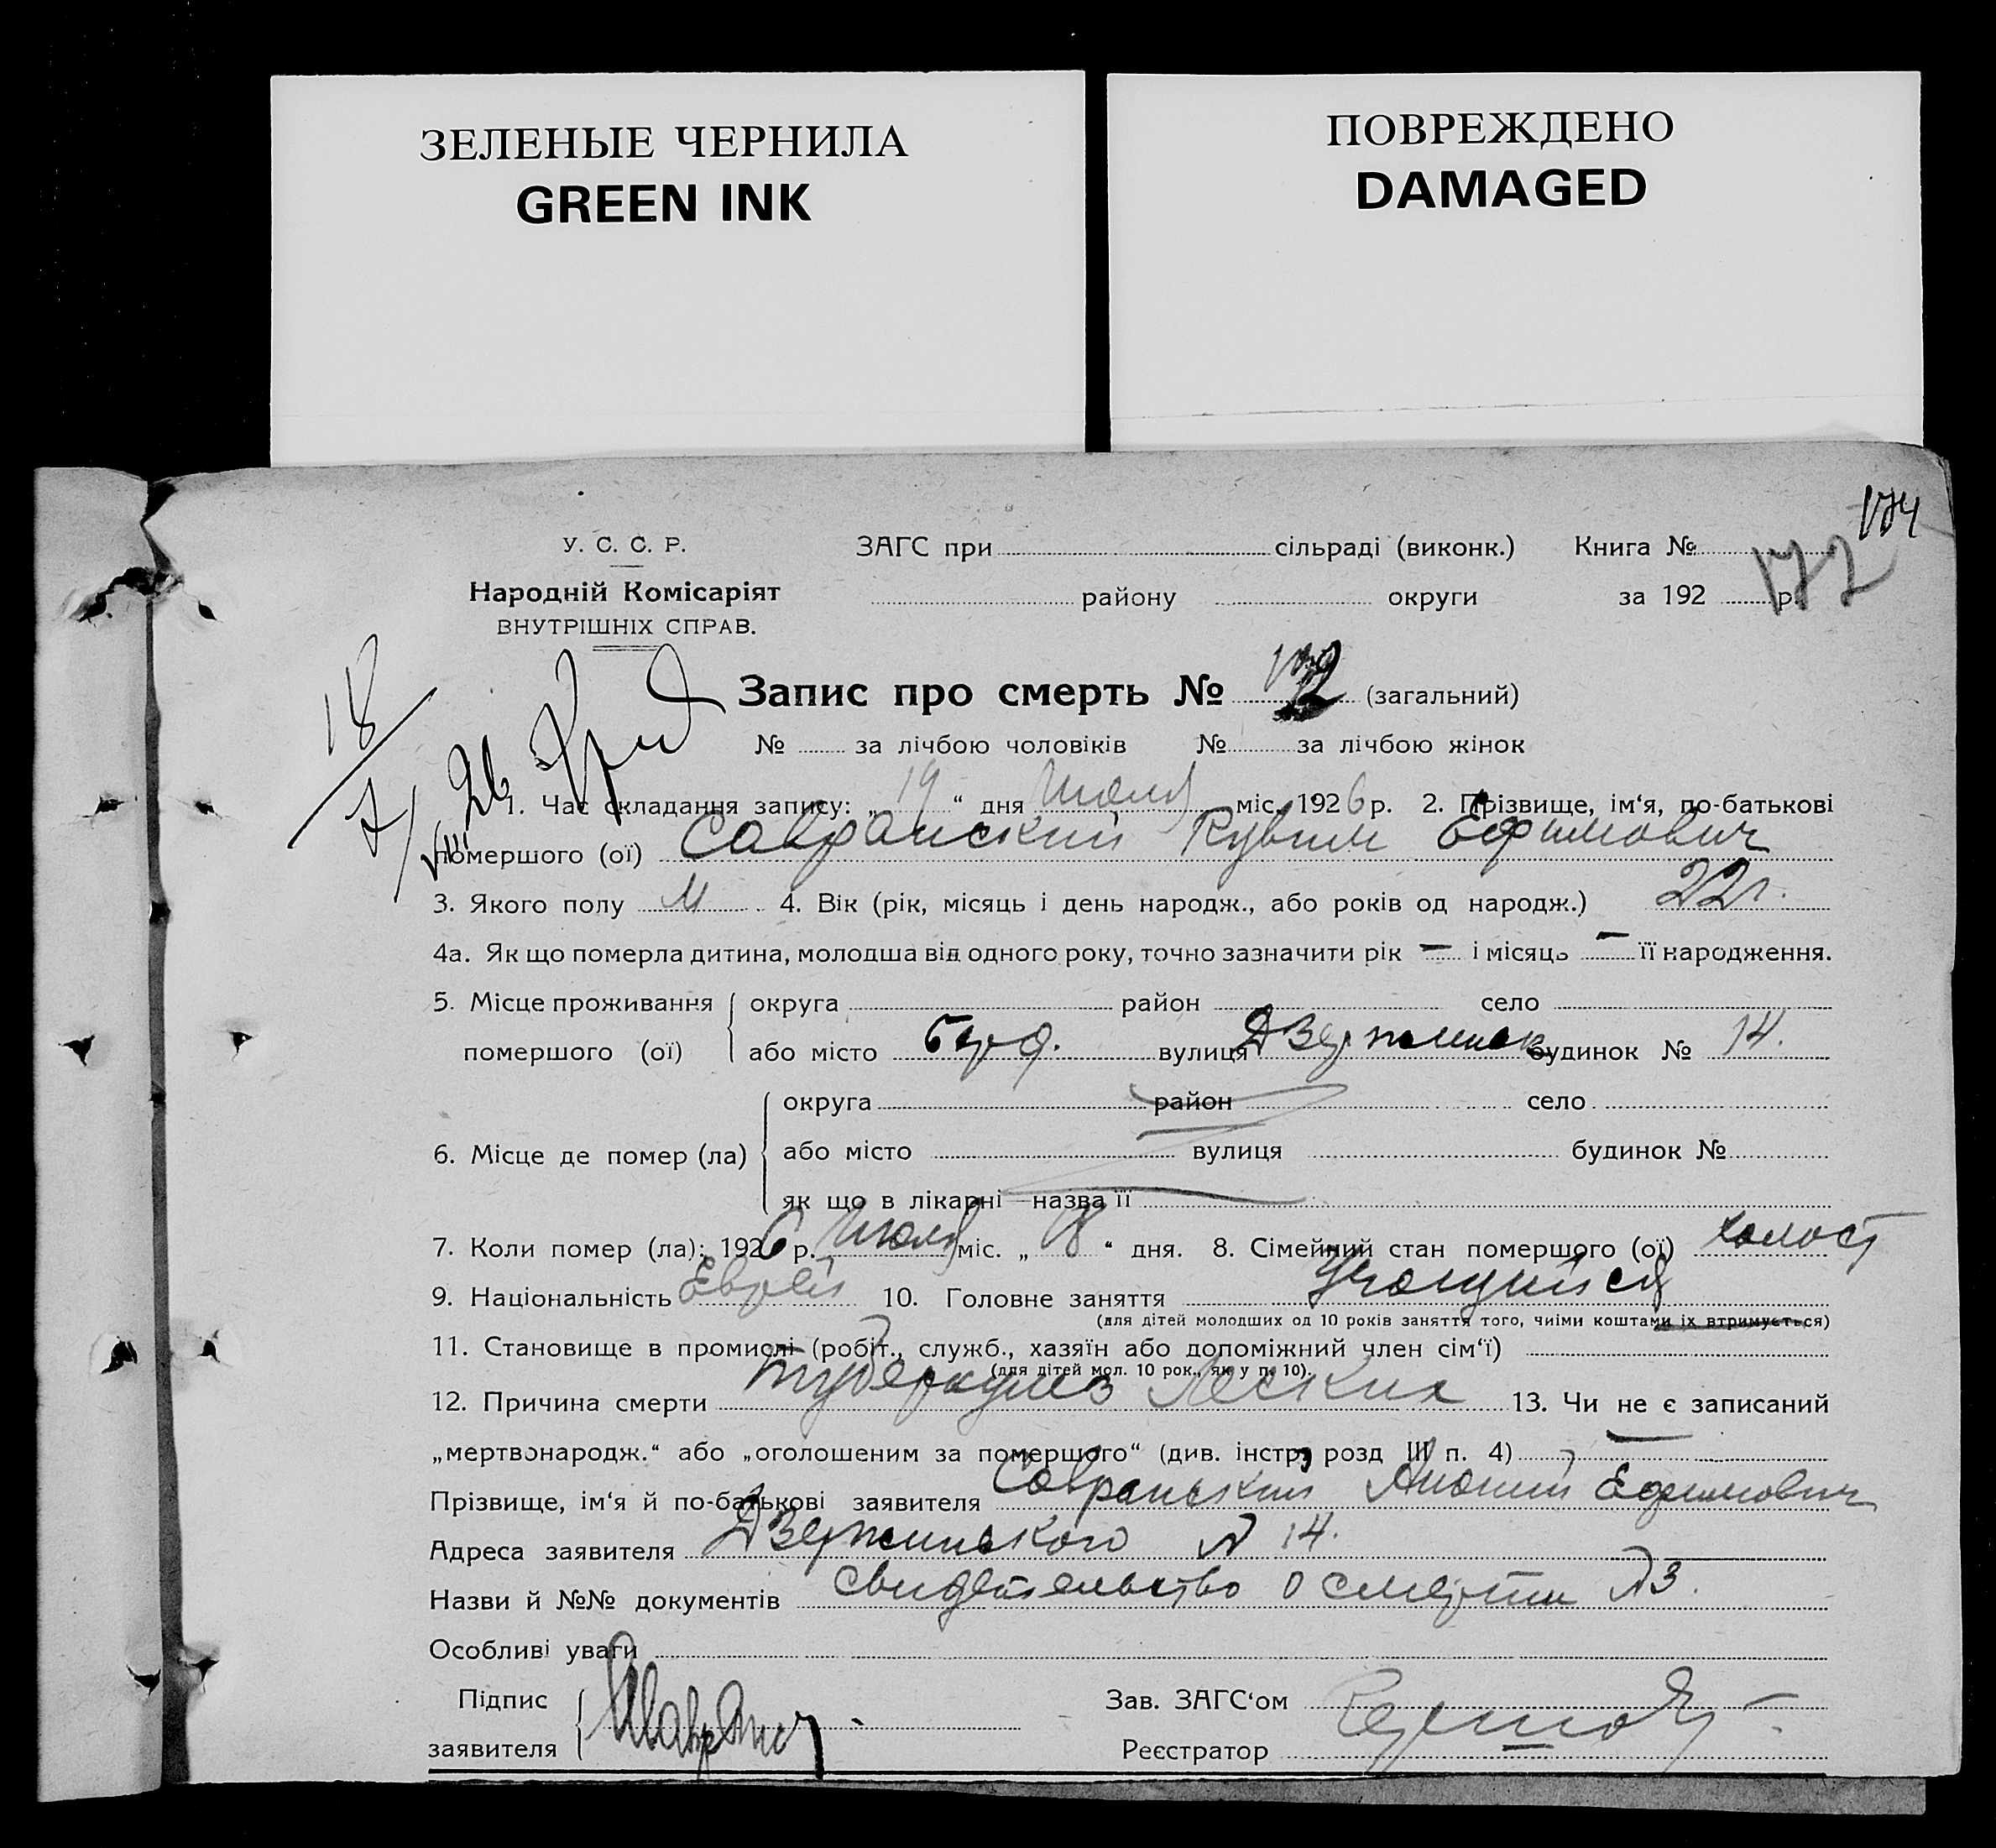 ЗЕЛЕНЫЕ ЧЕРНИЛА
GREEN INK
ПОВРЕЖДЕНО
DAMAGED
174
У. С. С. Р.
ЗАГС при сільраді (виконк.) Книга №
172
Народній Комісаріят
району округи за 192 р.
ВНУТРІШНІХ СПРАВ.
18/7 26
Запис про смерть № 172 (загальний)
№ за лічбою чоловіків № за лічбою жінок
1. Час складання запису: „19“ дня Июля міс. 1926 р. 2. Прізвище, ім‘я, по-батькові
VIII
помершого (ої) Савранский Рувим Ефимович
3. Якого полу М 4. Вік (рік, місяць і день народж., або років од народж.) 22 г.
4а. Як що померла дитина, молодша від одного року, точно зазначити рік — і місяць — її народження.
5. Місце проживання округа район село
помершого (ої) або місто Берд. вулиця Дзержинск будинок № 14.
округа район село
6. Місце де помер (ла) або місто вулиця будинок №
як що в лікарні—назва її
7. Коли помер (ла): 1926 р. Июля міс. „18“ дня. 8. Сімейний стан помершого (ої) холост
9. Національність Еврей 10. Головне заняття Учащийся
(для дітей молодших од 10 років заняття того, чиїми коштами їх втримується)
11. Становище в промислі (робіт., служб., хазяїн або допоміжний член сім‘ї)
(для дітей мол. 10 рок., як у п. 10).
12. Причина смерти туберкулез легких 13. Чи не є записаний
„мертвонародж.“ або „оголошеним за помершого“ (див. інстр. розд III п. 4) —
Прізвище, ім‘я й по-батькові заявителя Савранский Ефимович
Адреса заявителя Дзержинского № 14.
Назви й №№ документів свидетельство о смерти № 3.
Особливі уваги
Підпис
Зав. ЗАГС‘ом
заявителя
Реєстратор